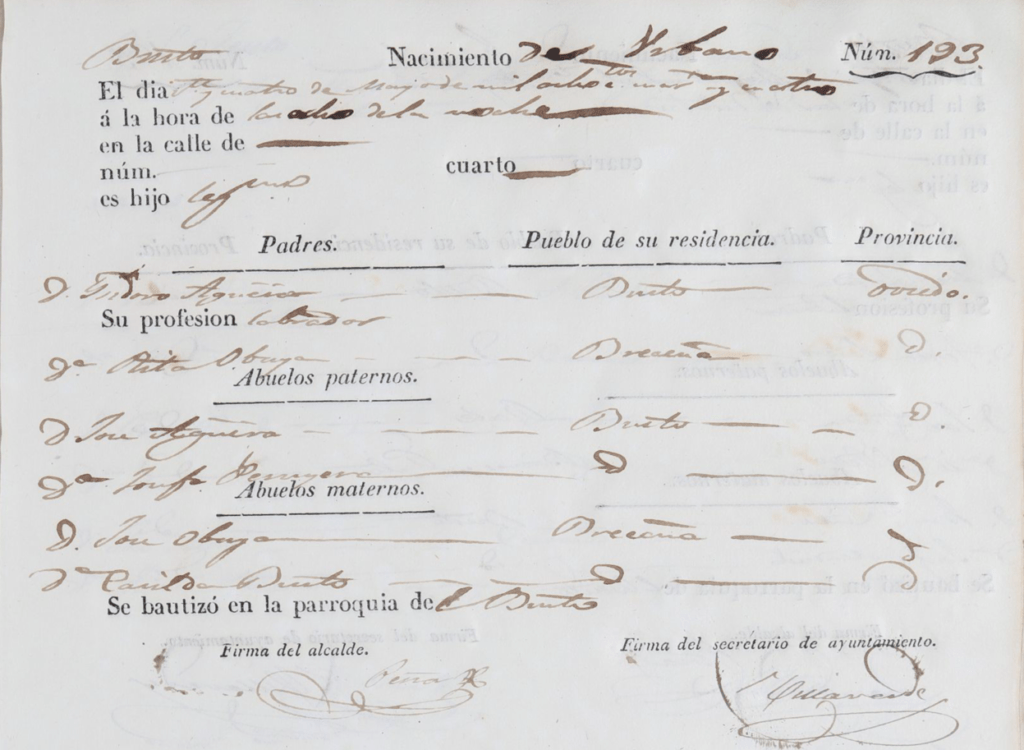 Bueto Nacimiento de Urbano Núm. 193.
El dia y cuatro de Mayo de mil ochoc.tos cuar.ta y cuatro
á la hora de las ocho de la noche
en la calle de
núm. cuarto
es hijo leg.mo
Padres. Pueblo de su residencia. Provincia.
D. Isidoro Agüera Bueto Oviedo.
Su profesion labrador
D.a Rita Obaya Breceña D.
Abuelos paternos.
D. Jose Agüera Bueto D.
D.a Josefa D D.
Abuelos maternos.
D. Jose Obaya Breceña D
D.a Casilda Bueto D D
Se bautizó en la parroquia de Bueto
Firma del alcalde. Firma del secretario de ayuntamiento.
Villaverde